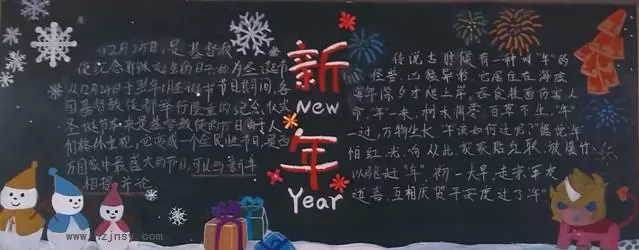 12月25日,是基督教
使纪念耶稣诞生的日子,称为圣诞节
从12月24日于翌年1月6日为圣诞节节日期间,各
国基督教徒都举行隆重的纪念仪式
圣诞节本来是基督教徒的节日,由于人
们格外重视,它便成一个全民性节日,是西
方国家中最盛大的节日,可以与新年
相提并论。
新
New
年
Year
传说古时候有一种叫"年"的
怪兽,凶猛异常,它居住在海底
每年除夕才爬上岸,吞食牲畜伤害人
命,"年"一来,树木凋零百草不生,"年"
一过,万物生长
怕红、光、响,从此,家家贴红联、放爆竹
以驱赶"年",初一大早,走亲串友
道喜,互相庆贺平安度过了"年"